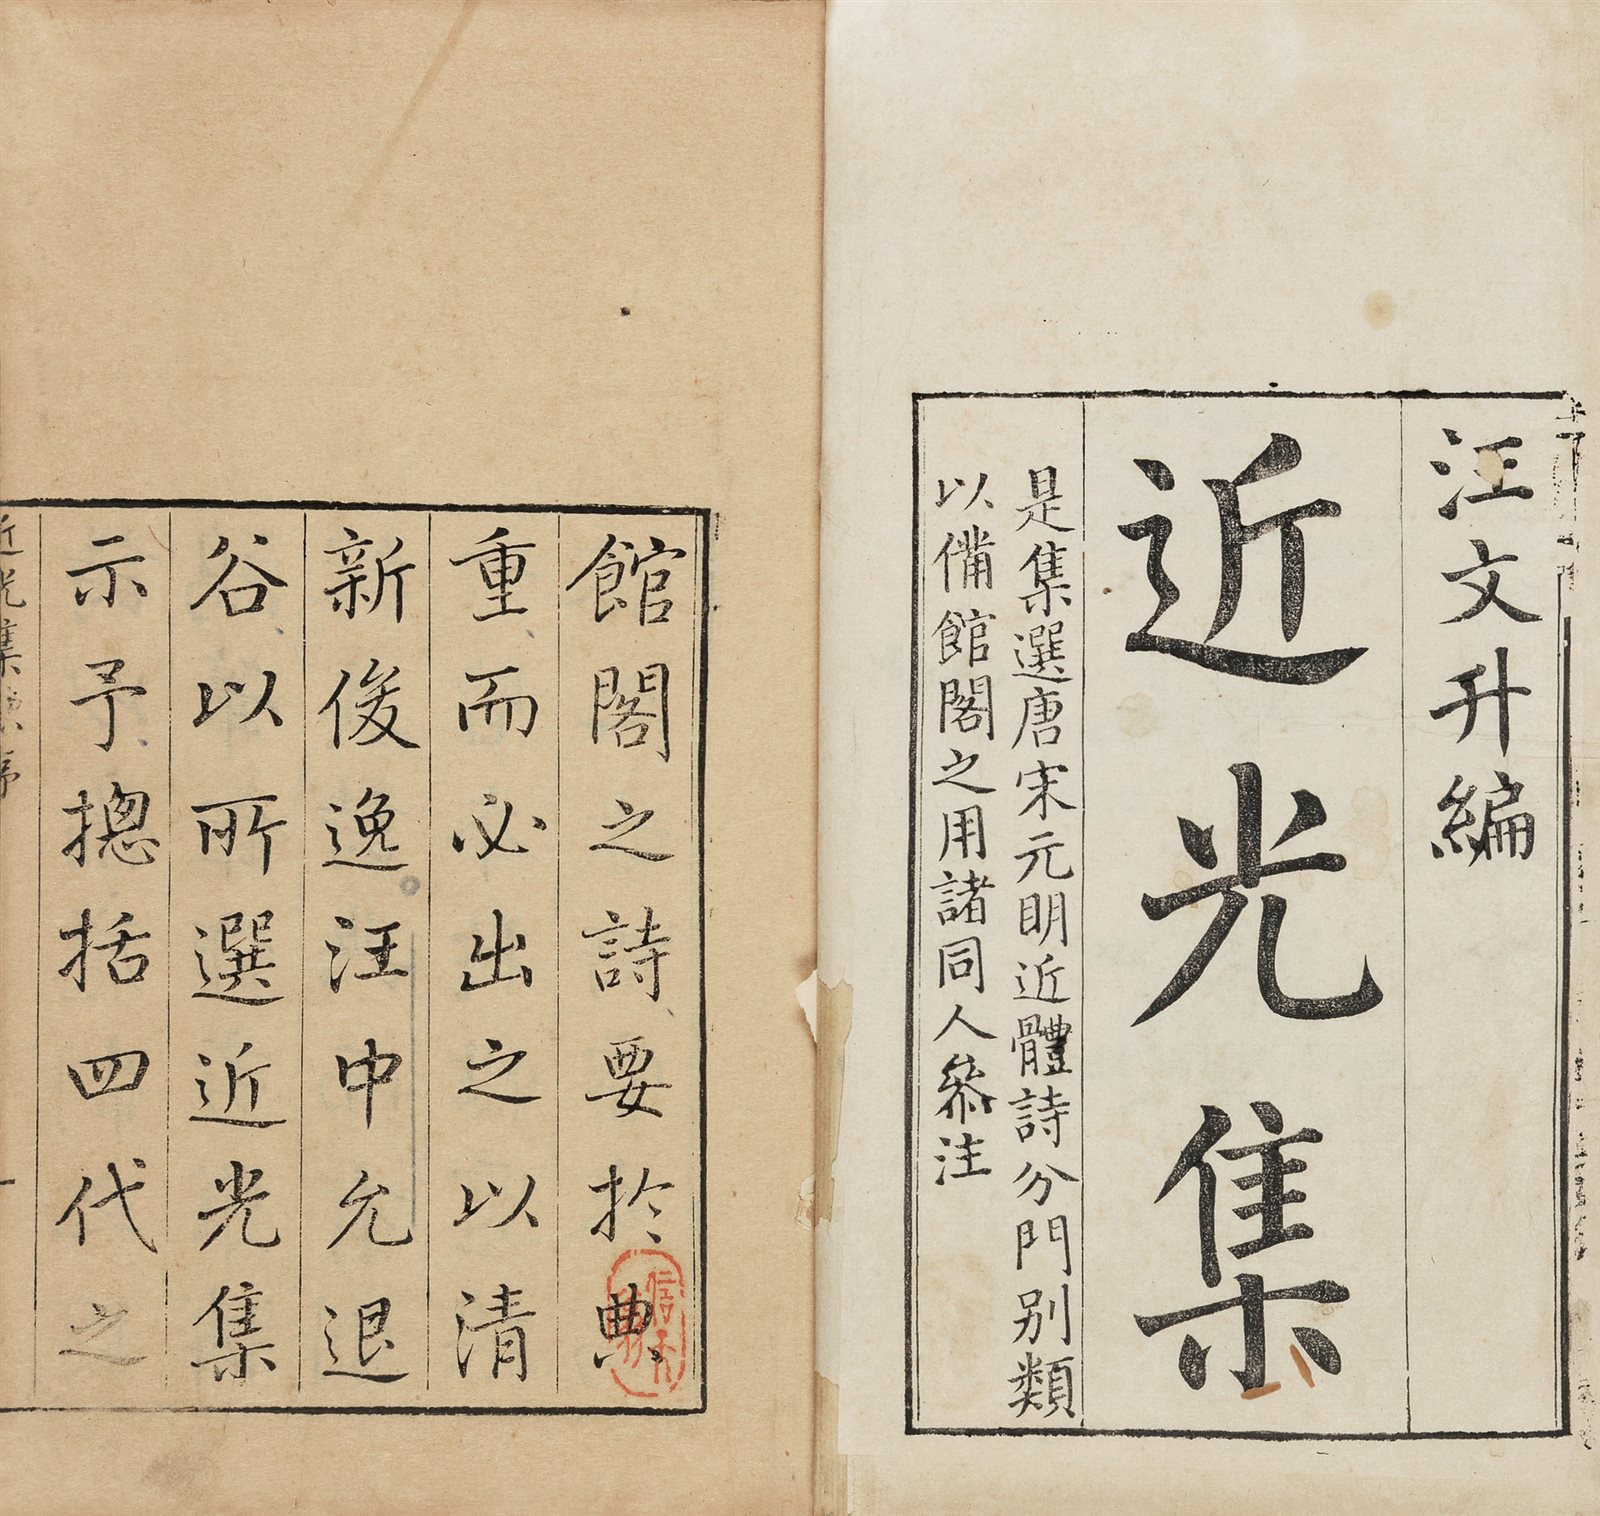 汪文升編
近光集
是集選唐宋元明近體詩分門别類
以備館閣之用諸同人叅注
館閣之詩要扵典
重而必出之以清
新俊逸汪中允退
谷以所選近光集
示予摠括四代之
近光集 序